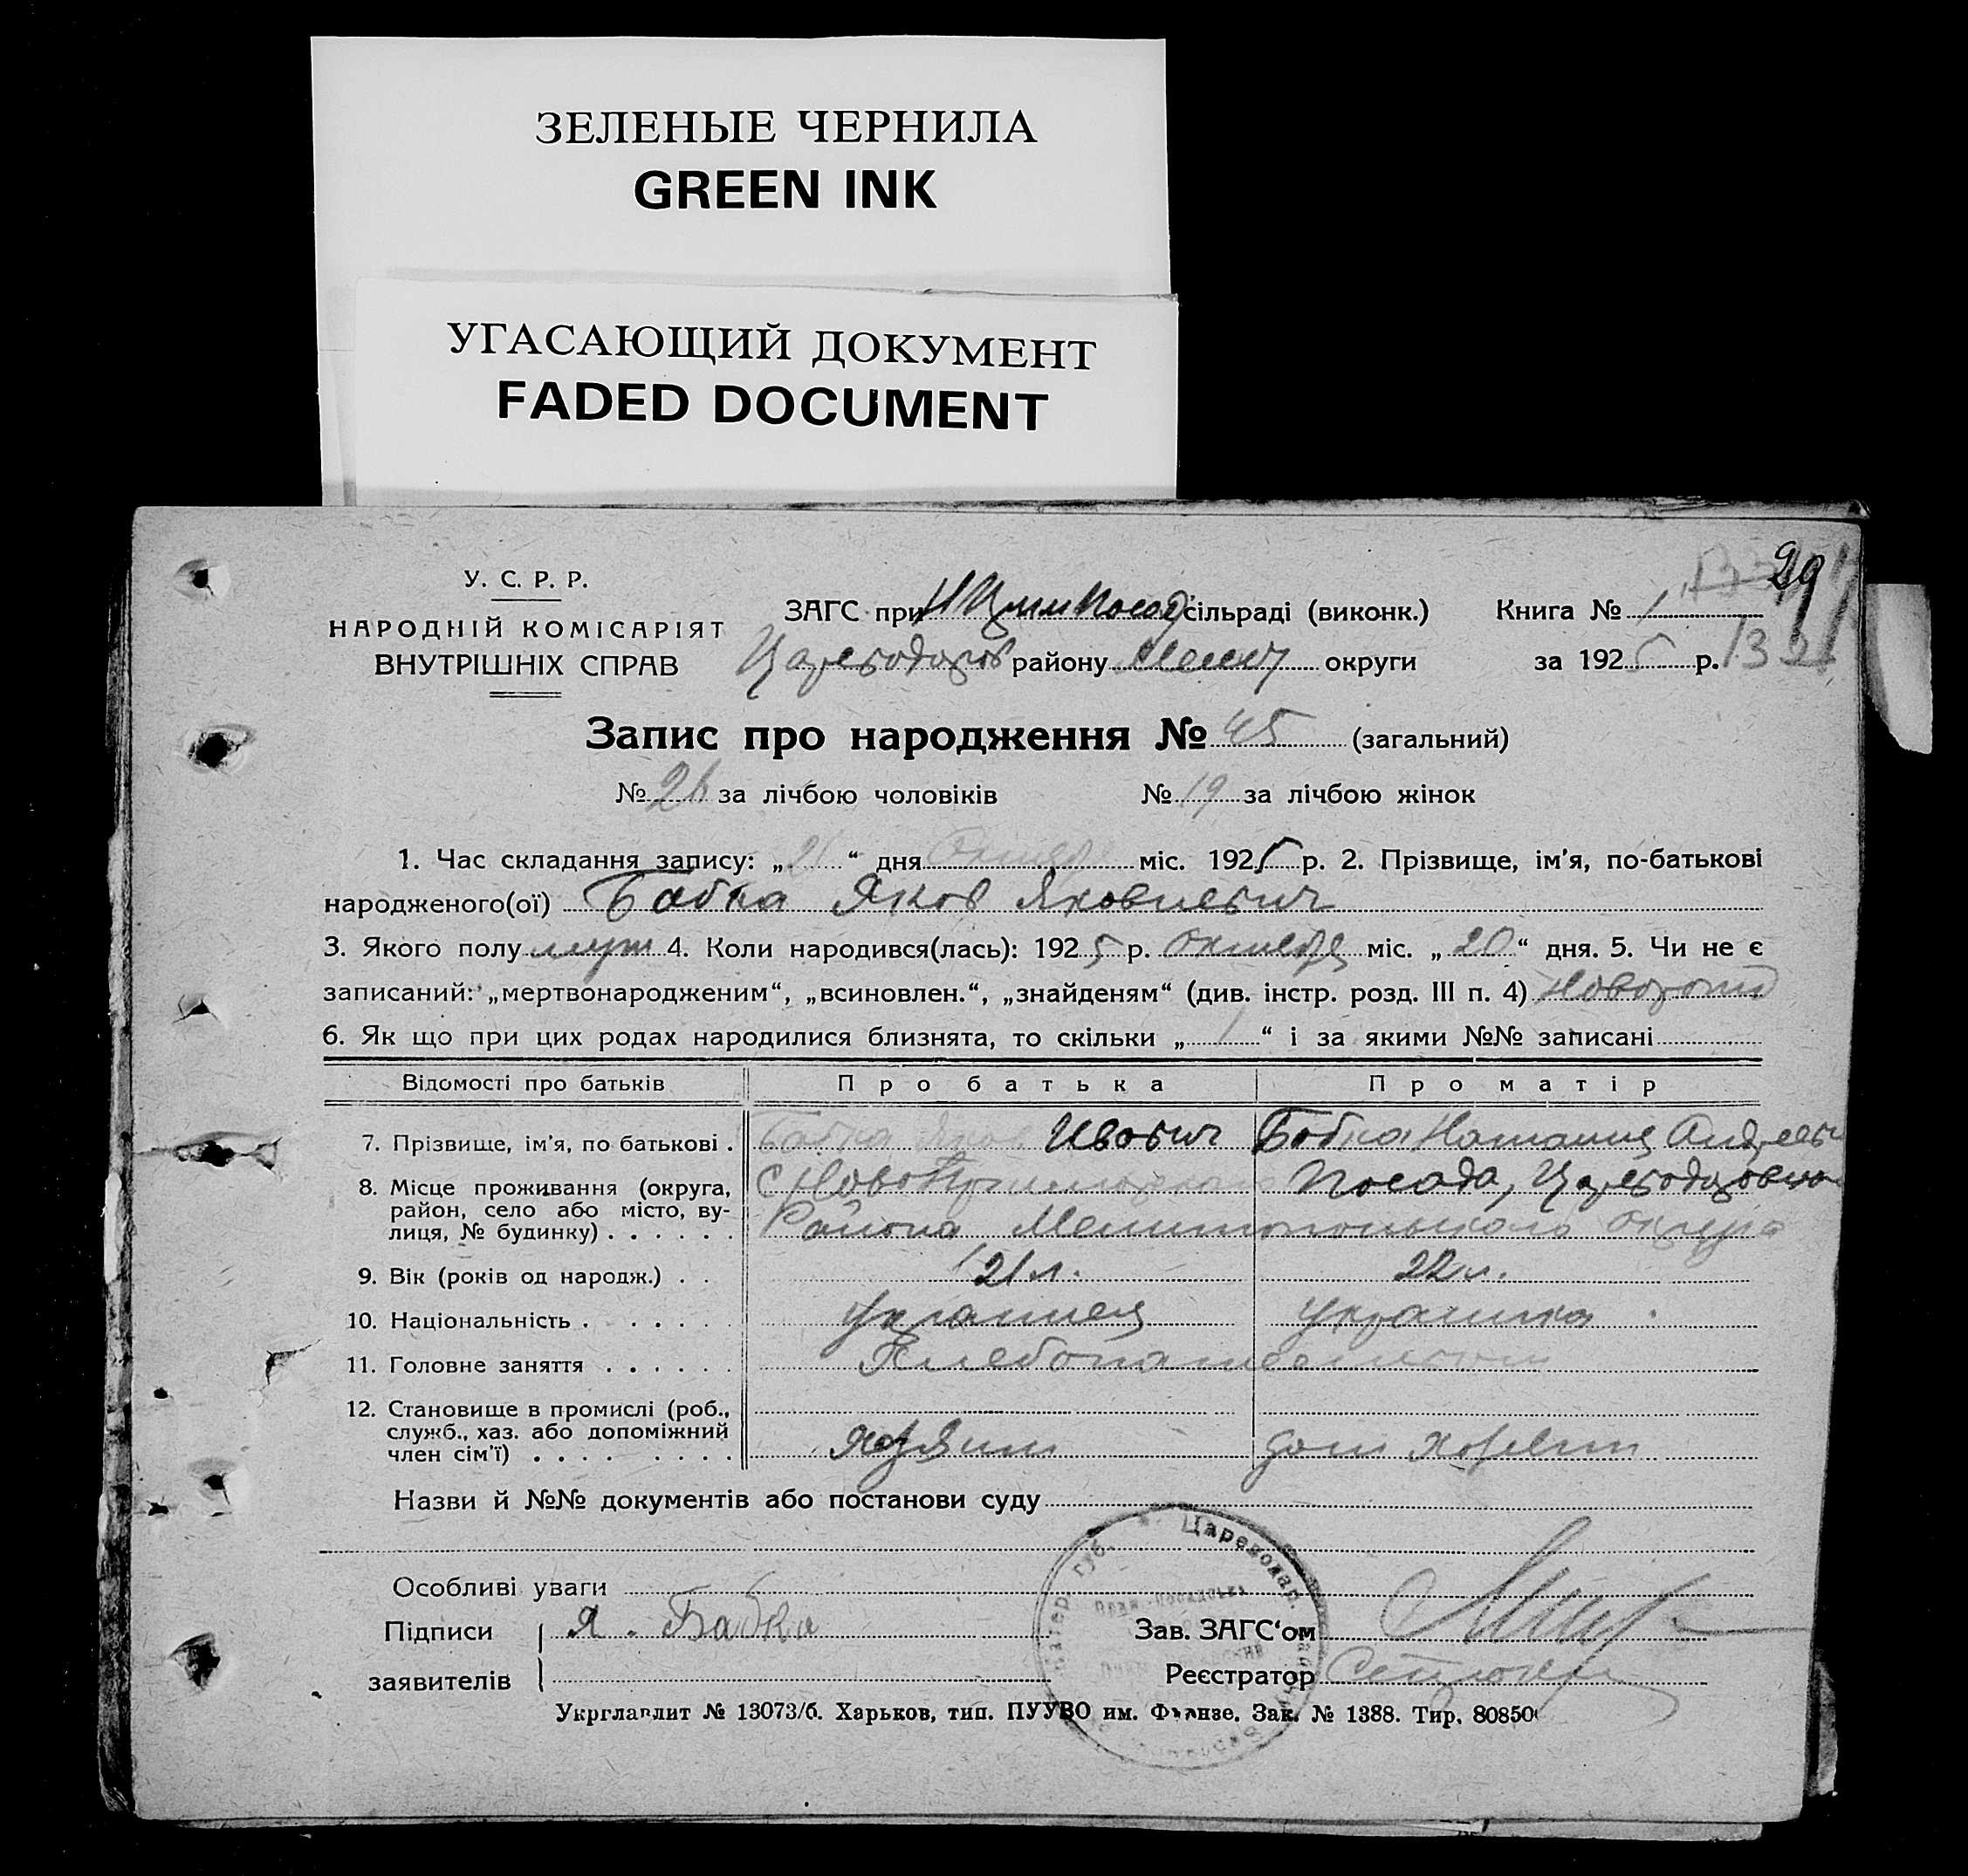 ЗЕЛЕНЫЕ ЧЕРНИЛА
GREEN INK
УГАСАЮЩИЙ ДОКУМЕНТ
FADED DOCUMENT
29
У. С. Р. Р.
НАРОДНІЙ КОМІСАРІЯТ
ВНУТРІШНІХ СПРАВ
ЗАГС при сільраді (виконк.) Книга № 1
району округи за 1925 р. 132
Запис про народження № 45 (загальний)
№ 26 за лічбою чоловіків № 19 за лічбою жінок
1. Час складання запису: „21“ дня міс. 1925 р. 2. Прізвище, ім'я, по-батькові
народженого(ої) Бабка Яков Яковлевич
3. Якого полу муж 4. Коли народився(лась): 1925 р. Октября міс. „20“ дня. 5. Чи не є
записаний: „мертвонародженим“, „всиновлен.“, „знайденям“ (див. інстр. розд. III п. 4)
6. Як що при цих родах народилися близнята, то скільки „1“ і за якими №№ записані
Відомості про батьків Про батька Про матір
7. Прізвище, ім'я, по батькові . Бабка Яков Ивович Бабка Наталия Андреевн
8. Місце проживання (округа, Посада,
район, село або місто, ву- Района Мелитопольского округа
лиця, № будинку) . . . . . .
9. Вік (років од народж.) . . 21 л. 22 л.
10. Національність . . . . . . украинец украинка
11. Головне заняття . . . . . . Хлебопашество
12. Становище в промислі (роб.,
служб., хаз. або допоміжний
член сім'ї) . . . . . . . . хозяин дом хозяин
Назви й №№ документів або постанови суду
Особливі уваги
Підписи Я. Бабка Зав. ЗАГС‘ом
заявителів Реєстратор
Укрглавлит № 13073/б. Харьков, тип. ПУУВО им. Фрунзе. Зак. № 1388. Тир. 80850